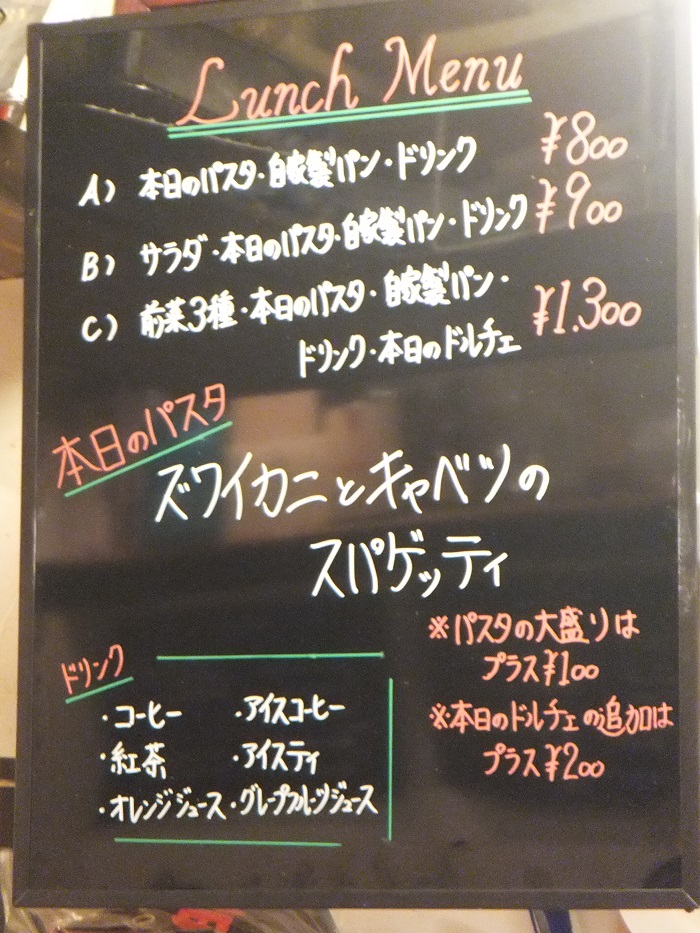 Lunch Menu
A) 本日のパスタ・自家製パン・ドリンク ¥800
B) サラダ・本日のパスタ・自家製パン・ドリンク ¥900
C) 前菜3種・本日のパスタ・自家製パン・
ドリンク・本日のドルチェ ¥1.300
本日のパスタ
ズワイカニとキャベツの
スパゲッティ
※パスタの大盛りは
プラス¥100
※本日のドルチェの追加は
プラス¥200
ドリンク
・コーヒー ・アイスコーヒー
・紅茶 ・アイスティ
・オレンジジュース ・グレープフルーツジュース